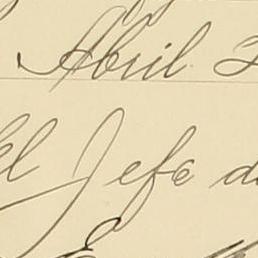 Abril 2
el Jefe de